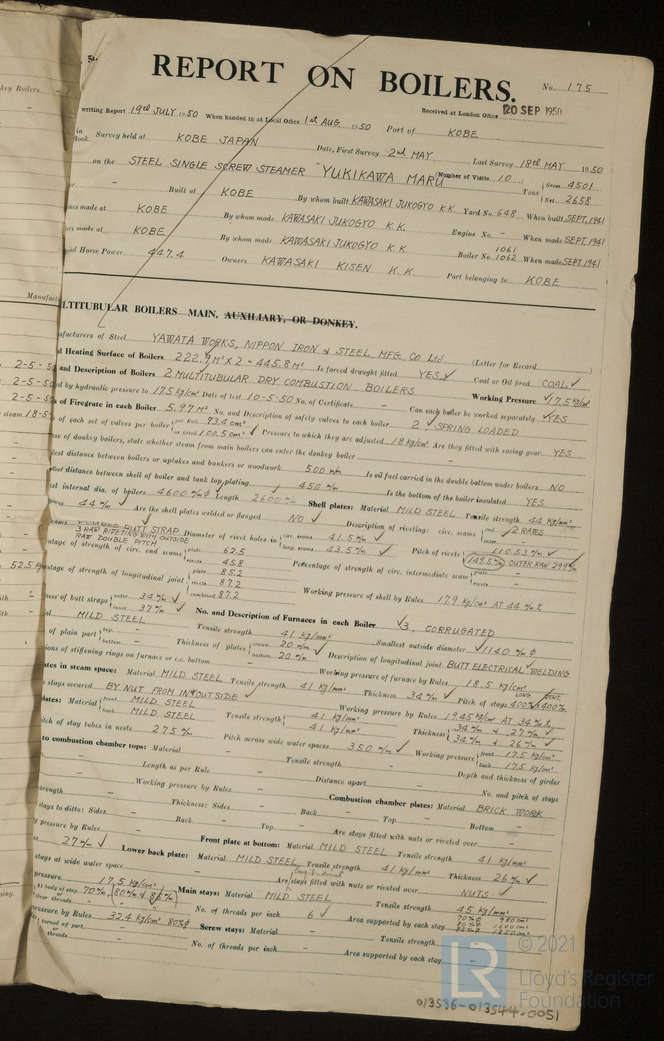 REPORT ON BOILERS.
No. 175
Received at London Office 20 SEP 1950
writing Report 19th JULY 1950 When handed in at Local Office 1st AUG. 1950 Port of KOBE
Survey held at KOBE JAPAN Date, First Survey 2nd MAY Last Survey 18th MAY 1950
Book.
(Number of Visits 10)
on the STEEL SINGLE SCREW STEAMER "YUKIKAWA MARU Tons { Gross 4501
Net 2658
Built at KOBE By whom built KAWASAKI JUKOGYO K.K. Yard No. 648 When built SEPT. 1941
made at KOBE By whom made KAWASAKI JUKOGYO K.K. Engine No. - When made SEPT. 1941
made at KOBE By whom made KAWASAKI JUKOGYO K.K. Boiler No. 1061 1062 When made SEPT. 1941
Horse Power 447.4 Owners KAWASAKI KISEN K.K. Port belonging to KOBE
MULTITUBULAR BOILERS MAIN, AUXILIARY, OR DONKEY.
Manufac
of Steel YAWATA WORKS, NIPPON IRON & STEEL MFG. CO Ltd. (Letter for Record )
Heating Surface of Boilers 222.9 M² X 2 = 445.8 M² Is forced draught fitted YES Coal or Oil fired COAL
and Description of Boilers 2 MULTITUBULAR DRY COMBUSTION BOILERS Working Pressure 17.5 kg/cm²
by hydraulic pressure to 17.5 kg/cm² Date of test 10-5-50 No. of Certificate - Can each boiler be worked separately YES
of Firegrate in each Boiler 5.97 M² No. and Description of safety valves to each boiler 2 SPRING LOADED
of each set of valves per boiler { per Rule 73.4 cm²
as fitted 100.5 cm² Pressure to which they are adjusted 18 kg/cm² Are they fitted with easing gear YES
of donkey boilers, state whether steam from main boilers can enter the donkey boiler -
distance between boilers or uptakes and bunkers or woodwork 500 m/m Is oil fuel carried in the double bottom under boilers NO
distance between shell of boiler and tank top plating 450 m/m Is the bottom of the boiler insulated YES
internal dia. of boilers 4600 m/m Length 2600 m/m Shell plates: Material MILD STEEL Tensile strength 44 kg/mm²
44 m/m Are the shell plates welded or flanged NO Description of riveting: circ. seams 2 RAWS
BUTT STRAP
3 RAW RIVETING WITH OUTSIDE
RAW DOUBLE PITCH Diameter of rivet holes in { circ. seams 41.5 m/m
long. seams 43.5 m/m Pitch of rivets { 110.53 m/m
149.5 m/m OUTER RAW 299 m/m
of strength of circ. end seams { plate 62.5
rivets 45.8 Percentage of strength of circ. intermediate seam { plate -
rivets -
of strength of longitudinal joint { plate 85.2
rivets 87.2
combined 87.2 Working pressure of shell by Rules 17.9 kg/cm² AT 44 m/m t
of butt straps { outer 34 m/m
inner 37 m/m No. and Description of Furnaces in each Boiler 3, CORRUGATED
MILD STEEL Tensile strength 41 kg/mm² Smallest outside diameter 1140 m/m
of plain part { top -
bottom - Thickness of plates { crown 20 m/m
bottom 20 m/m Description of longitudinal joint BUTT ELECTRICAL WELDING
of stiffening rings on furnace or c.c. bottom - Working pressure of furnace by Rules 18.5 kg/cm²
in steam space: Material MILD STEEL Tensile strength 41 kg/mm² Thickness 34 m/m Pitch of stays 400 400
stays secured BY NUT FROM IN & OUTSIDE Working pressure by Rules 19.45 kg/cm² AT 34 m/m t
plates: Material { front MILD STEEL
back MILD STEEL Tensile strength { 41 kg/mm²
41 kg/mm² Thickness { 34 m/m & 27 m/m
34 m/m & 26 m/m
pitch of stay tubes in nests 275 m/m Pitch across wide water spaces 350 m/m Working pressure { front 17.5 kg/cm²
back 17.5 kg/cm²
to combustion chamber tops: Material - Tensile strength - Depth and thickness of girder
Length as per Rule - Distance apart - No. and pitch of stays
Working pressure by Rules - Combustion chamber plates: Material BRICK WORK
strength - Thickness: Sides - Back - Top - Bottom -
stays to ditto: Sides - Back - Top - Are stays fitted with nuts or riveted over -
pressure by Rules - Front plate at bottom: Material MILD STEEL Tensile strength 41 kg/mm²
27 m/m Lower back plate: Material MILD STEEL Tensile strength 41 kg/mm² Thickness 26 m/m
stays at wide water space - Are longitudinal stays fitted with nuts or riveted over NUTS
pressure 17.5 kg/cm² Main stays: Material MILD STEEL Tensile strength 45 kg/mm²
At body of stay 70 m/m
Over threads No. of threads per inch 6 Area supported by each stay
pressure by Rules 32.4 kg/cm² 80 Screw stays: Material - Tensile strength -
turned off part - No. of threads per inch - Area supported by each stay -
threads
2-5-50
2-5-50
2-5-50
steam 18-5-
52.5
013536-013544-0051
LR
© 2021
Lloyd's Register
Foundation